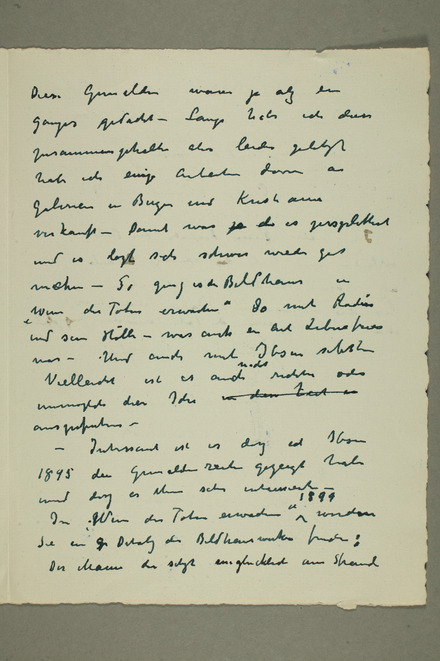 Diese Gemälden waren ja als ein
ganzes gedacht – Lange habe ich diese
zusammengehalten aber leider
habe ich einige Arbeiten davon an
Galerien in Bergen und Kristiania
verkauft – Damit war ja das es zersplittert
und es lässt sich schwer wieder gut
machen – So ging es der Bildhauer in
"Wenn die Toten erwachen" So mit Rodin
und sein Hölle – was auch ein Art Lebensfries
war – Und auch mit Ibsen selbst
Vielleicht ist es auch nicht richtig oder
unmöglich diese Idee in dem Zeit in
auszuführen –
– Interessant ist es dass ich Ibsen
1895 die Gemälden gezeigt habe
und dass es ihm sehr interessierte –
In "Wenn die Toten erwachen" 1899 werden
Sie ein Detalj des Bildhauerwerkes finden:
Der Mann der sitzt unglücklich am Strand